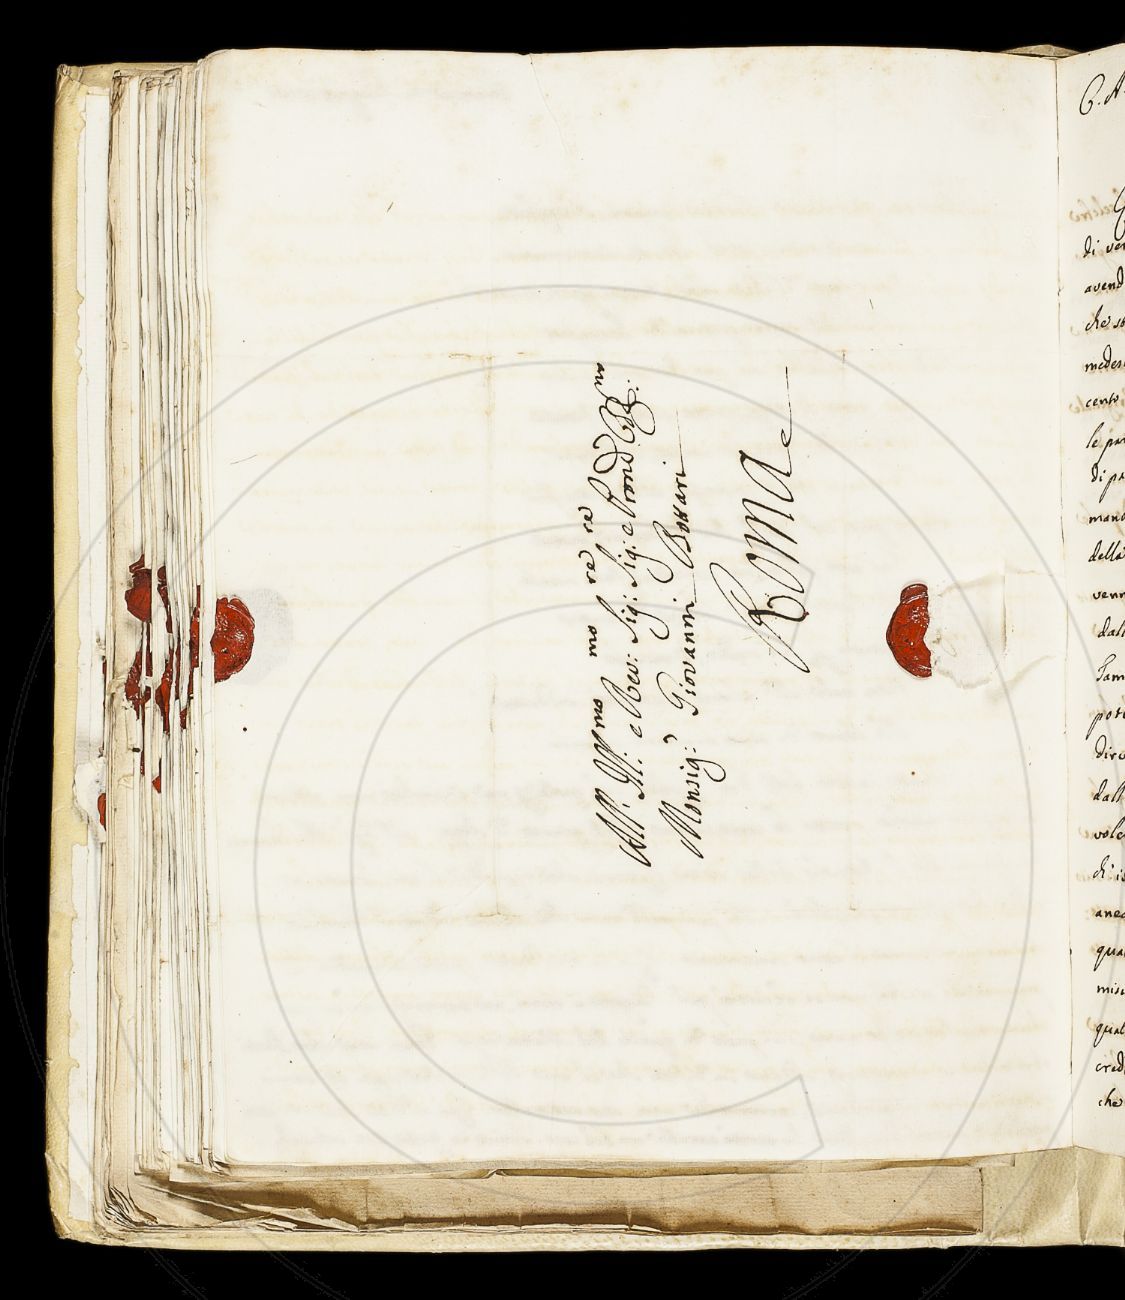 All': Ill:mo e Rev:mo Sig:re Sig:re e Pron̄e Col:mo
Monsig:r Giovanni Bottari
Roma
C. A.
di ven
avend
che st
medes
cento
le pr
di pr
mand
della
venn
dall
Tam
pote
dire
dall
vole
di is
anec
qua
misu
qual
cred
che